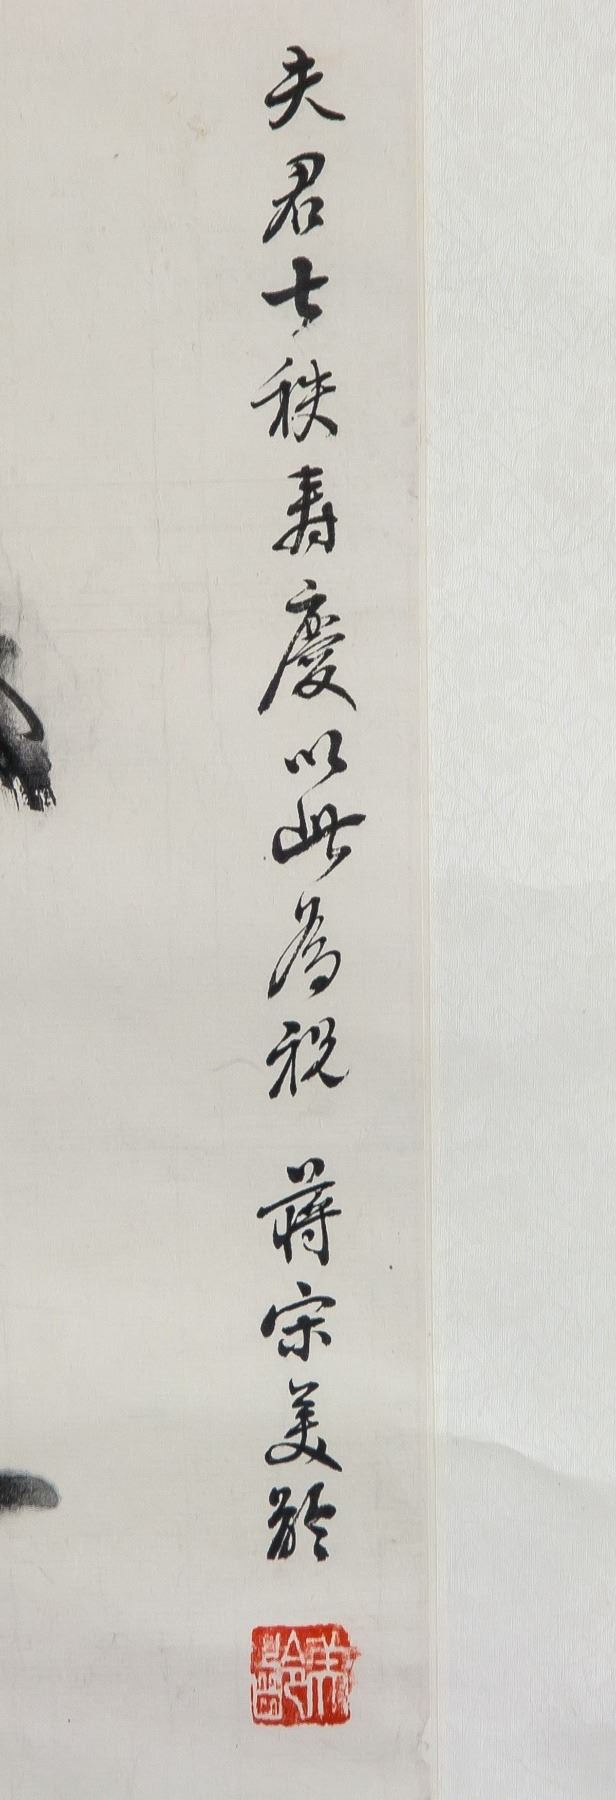 夫君七秩壽慶以此為祝 蔣宋美齡
美齡